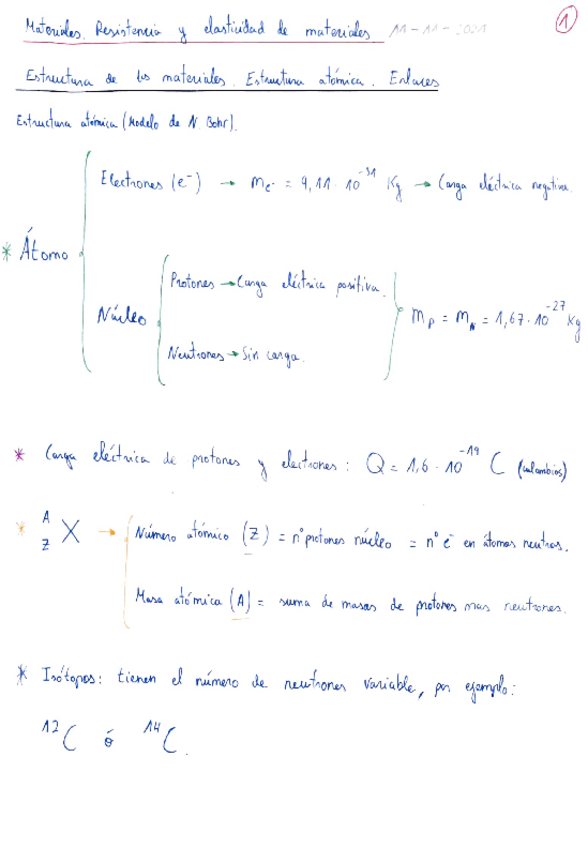 Materiales. Resistencia y elasticidad de materiales 11-11-2021 1
Estructura de los materiales. Estructura atómica. Enlaces
Estructura atómica (Modelo de N. Bohr).
Electrones (e⁻) → me⁻ = 9,11·10⁻³¹ Kg → Carga eléctrica negativa.
* Átomo
Protones → Carga eléctrica positiva.
Núcleo
mp = mn = 1,67·10⁻²⁷ Kg
Neutrones → Sin carga.
* Carga eléctrica de protones y electrones: Q = 1,6·10⁻¹⁹ C (culombios)
* A Z X → Número atómico (Z) = nº protones núcleo = nº e⁻ en átomos neutros.
Masa atómica (A) = suma de masas de protones mas neutrones.
* Isótopos: tienen el número de neutrones variable, por ejemplo:
¹²C ó ¹⁴C.